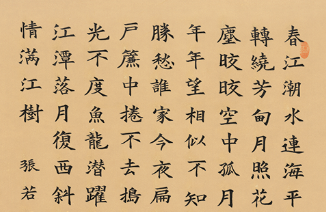 春江潮水連海平
轉繞芳甸月照花
塵皎皎空中孤月
年年望相似不知
勝愁誰家今夜扁
戶簾中捲不去搗
光不度魚龍潛躍
江潭落月復西斜
情滿江樹 張若